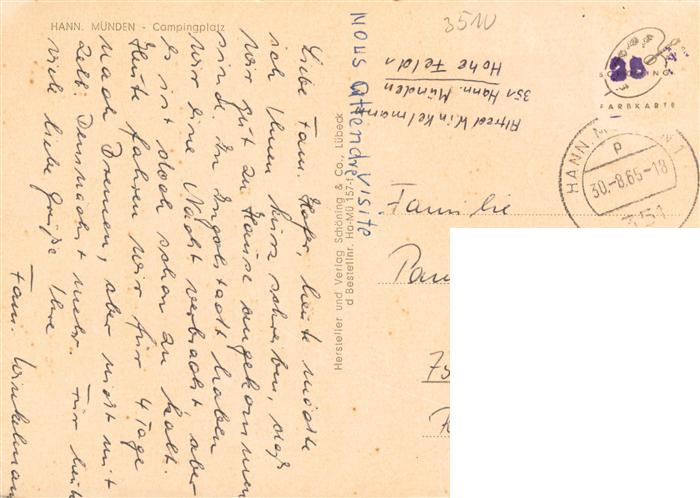 HANN. MÜNDEN - Campingplatz
Liebe Fam. Hofer, heute möchte
ich Ihnen kurz schreiben, daß
wir gut zu Hause angekommen
sind. In Ingolstadt haben
wir eine Nacht verbracht aber
es ist doch schon zu kalt.
Heute fahren wir für 4 Tage
nach Bremen, aber nicht mit
Zelt. Demnächst mehr. Für heute
viele liebe Grüße Ihre
Fam. Winkelmann
NOUS attendre visite
Hersteller und Verlag Schöning & Co., Lübeck
Bestellnr. Ha-Mü 157
3510
Alfred Winkelmann
351 Hann. Münden
Hohe Feld 1
SCHÖNING
FARBKARTE
HANN. M
1
p
30.-8.65-18
351
Familie